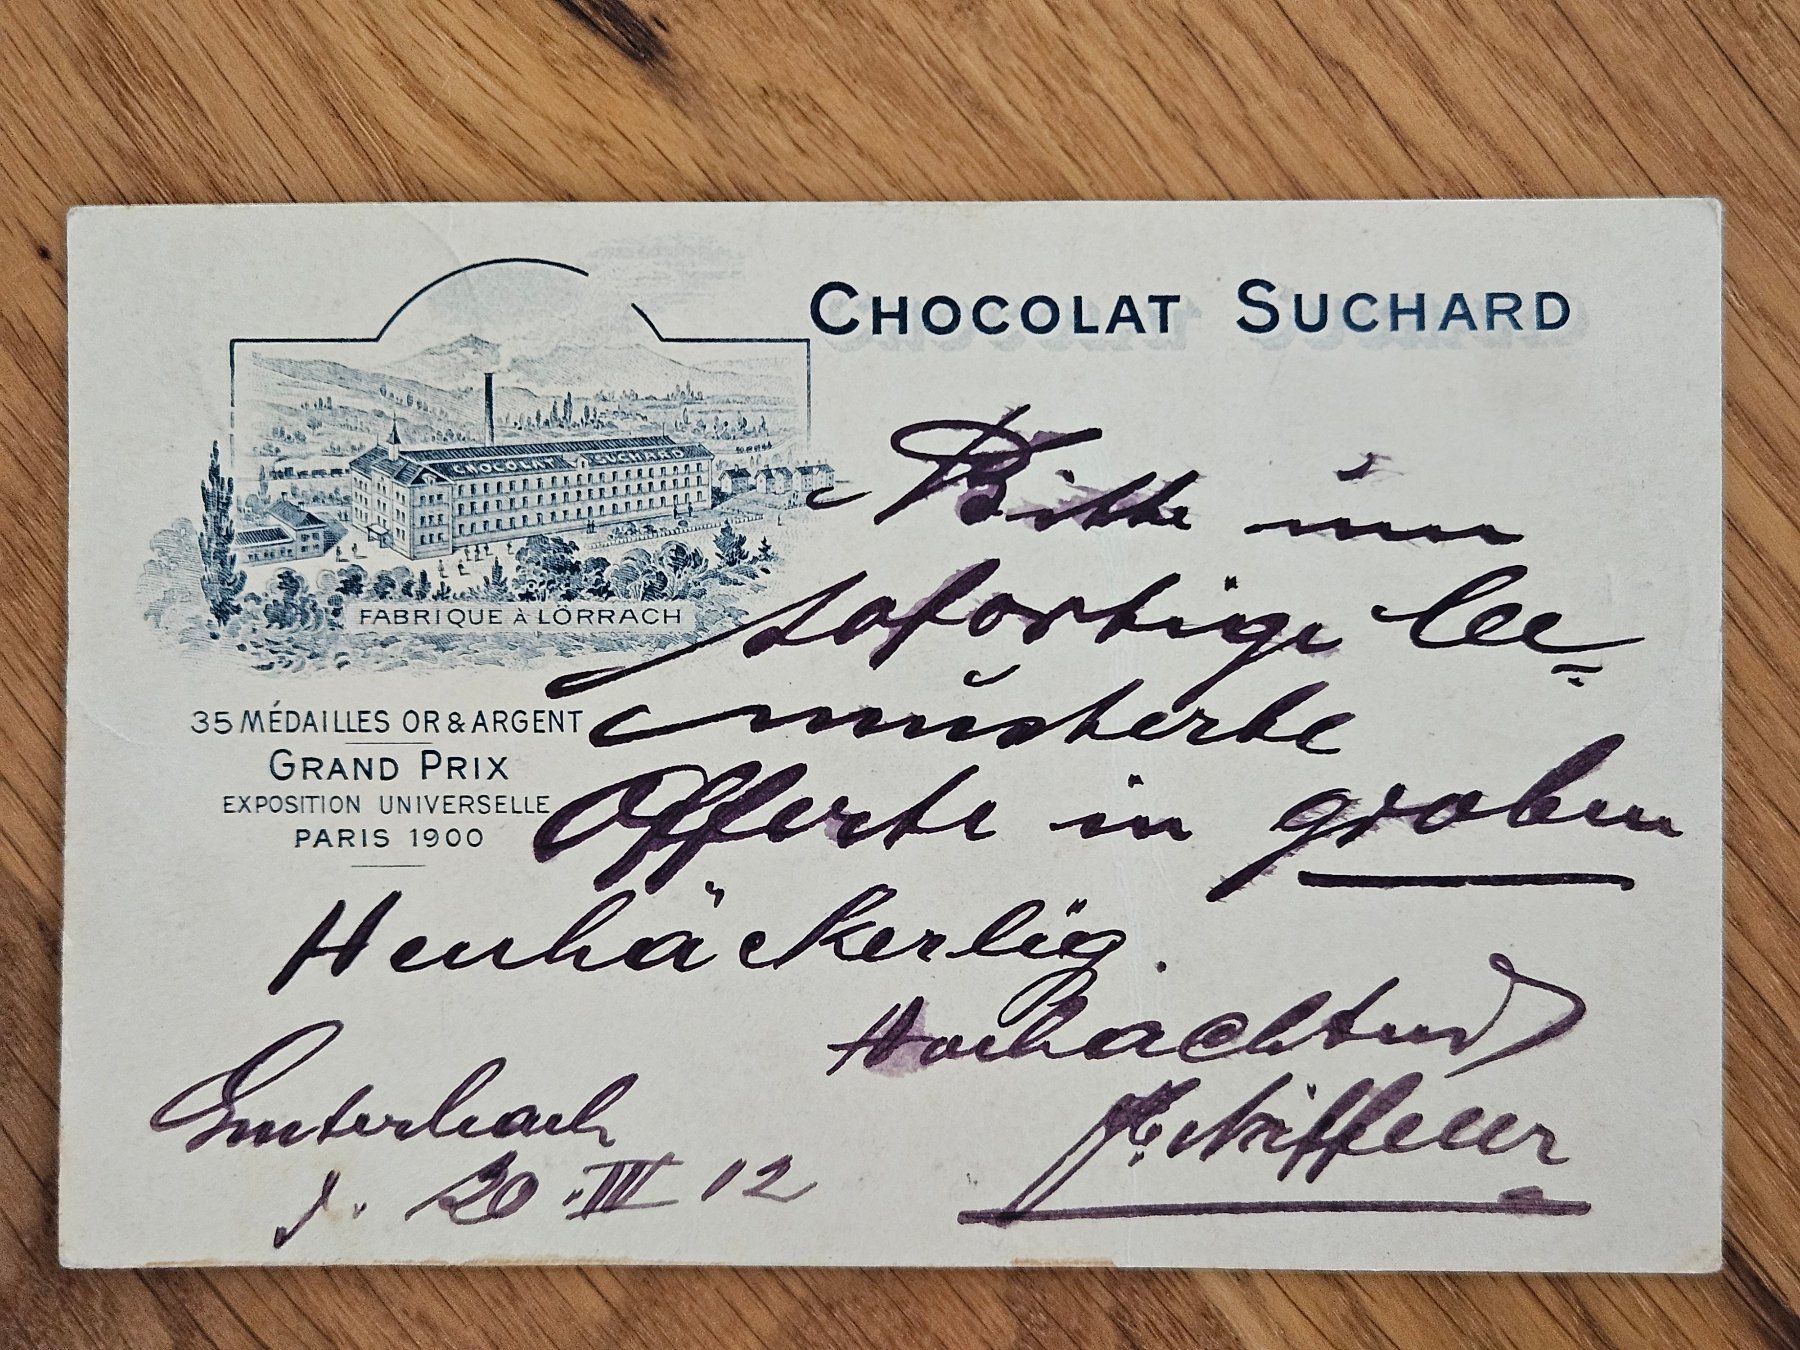 CHOCOLAT SUCHARD
CHOCOLAT SUCHARD
FABRIQUE À LÖRRACH
35 MÉDAILLES OR & ARGENT
GRAND PRIX
EXPOSITION UNIVERSELLE
PARIS 1900
Bitte um
sofortige be=
musterte
Offerte in groben
Heuhäckerlig.
Hochachtend
d. 20. III 12